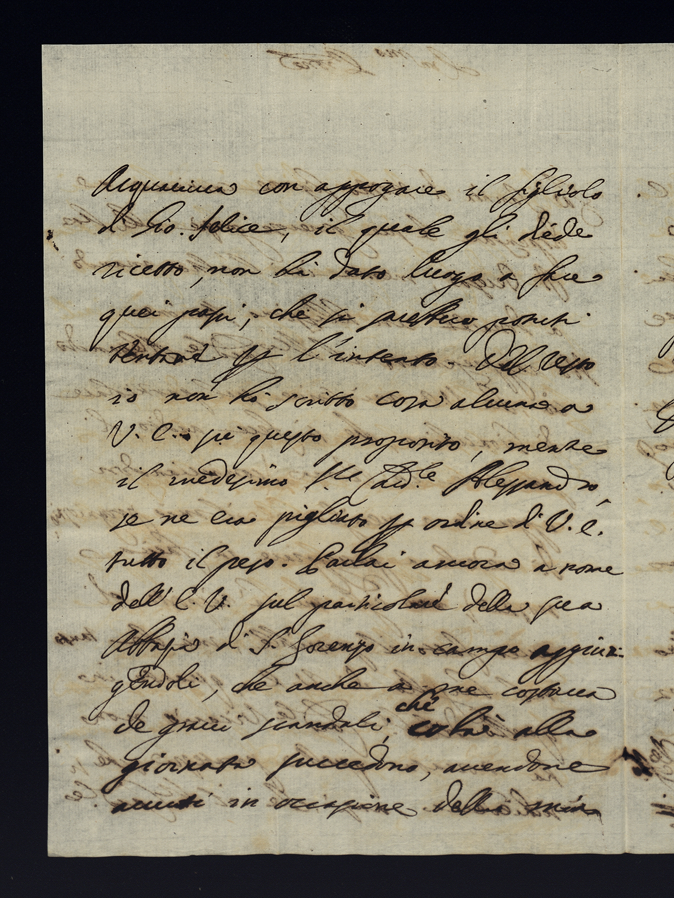 con appoggiare il figliolo
di Gio. felice, il quale gli diede
ricetto, non hà dato luogo a fare
quei passi, che si
l'intento. Del resto
io non hò scritto cosa alcuna a
V. E. su questo proposito, mentre
il medesimo Sig.re Card.le Alessandro
se ne era pigliato ordine di V. E.
tutto il peso. Parlai ancora a nome
dell'E. V. sul particolare della sua
Abbazia di S. Lorenzo in campo aggiun-
gendoli, che anche a me
de gravi scandali, che colà alla
giornata succedono, avendone
avuti in occasione della mia